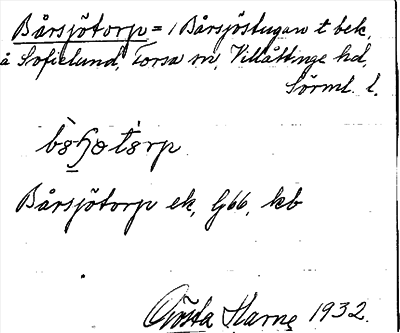 Bårsjötorp = / Bårsjöstugan t bek.
å Sofielund, Torsa sn, Villåttinge hd,
Sörml. l.
Bårsjötorp ek, G66, kb
Gösta Harne 1932.